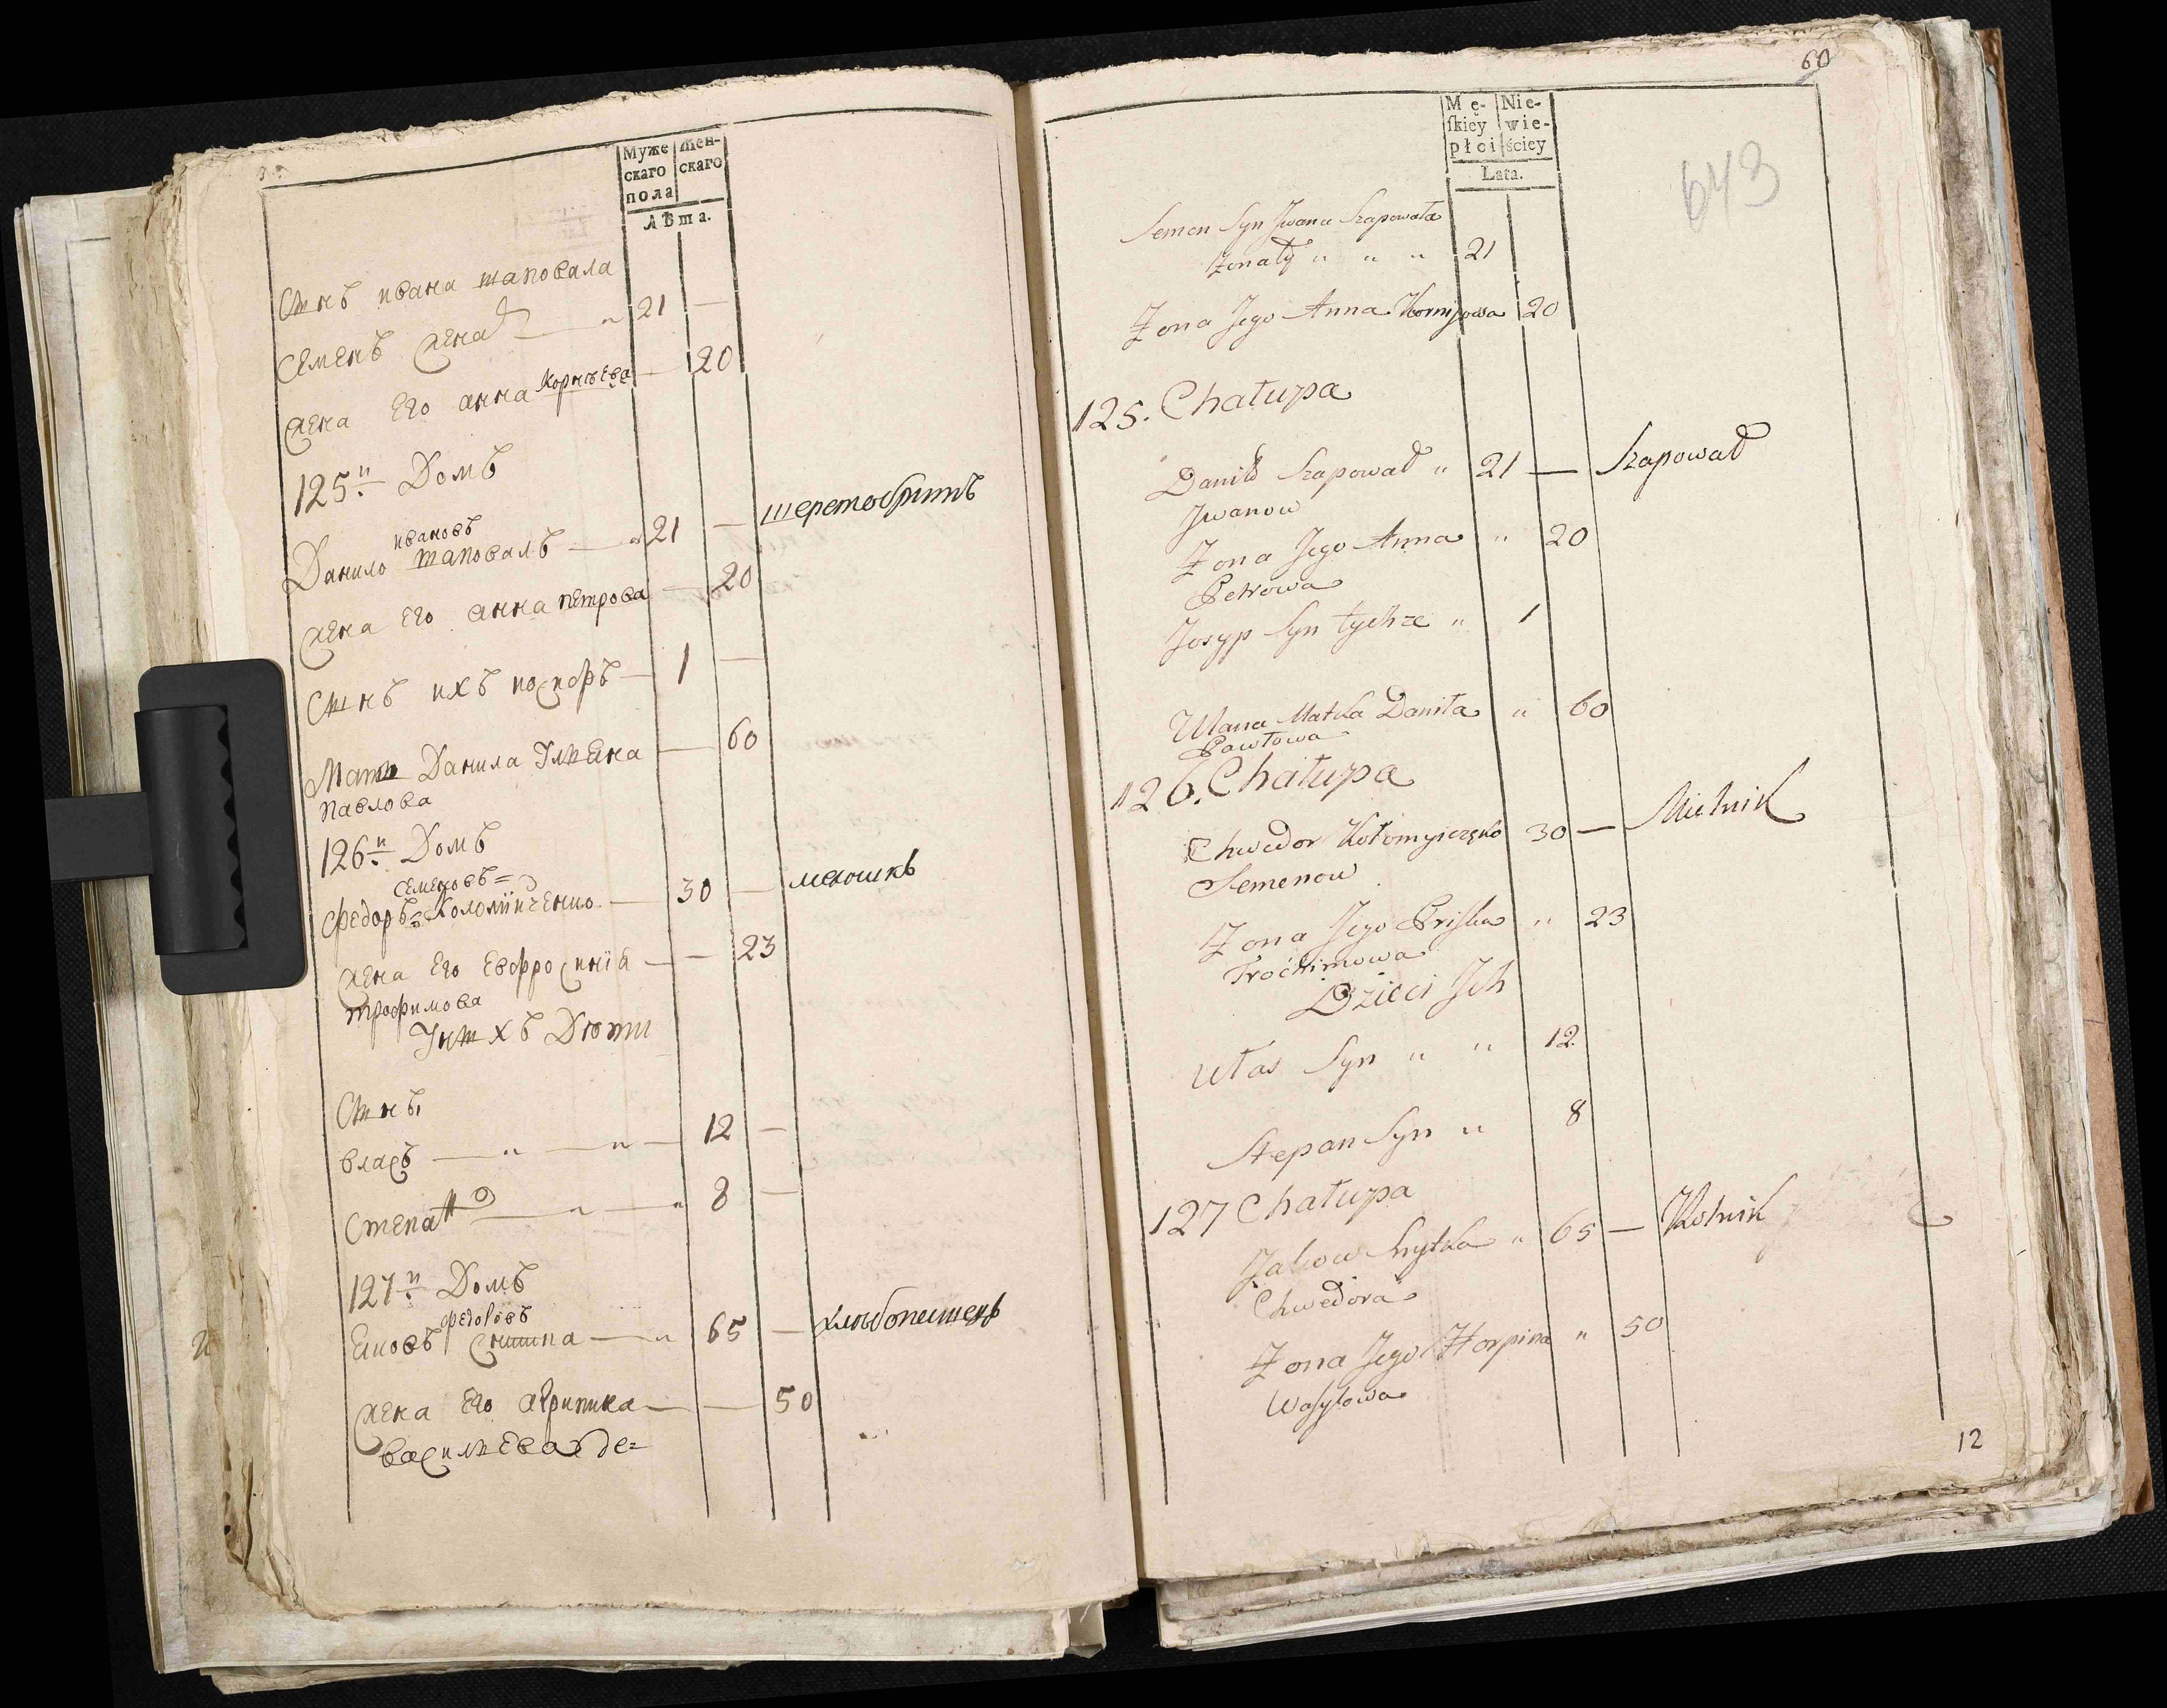 Муже
скаго
пола
Жен-
скаго
Лѣта.
Сынъ ивана шаповала
Семенъ женат 21 —
жена Его анна Корнѣева — 20
125й Домъ
ивановъ
Данило шаповалъ — 21 — шерстобитъ
жена Его анна петрова — 20
Сынъ ихъ иосифъ — 1 —
Мать Данила Ульяна — 60
павлова
126й Домъ
семеновъ=
федоръ= Коломийченко — 30 —
жена Его Евфросинія — — 23
трофимова
У нихъ Дѣти
Сынъ,
власъ — " — " — 12 —
степанъ — " — " 8 —
127й Домъ
федоровъ
Яковъ Снитка — " 65 — хлѣбопашецъ
жена Его агрипина — — 50
васильева
60
643
Mę-
skiey
płci
Nie-
wie-
ściey
Lata.
Semen Syn Jwana Szapowała
żonaty " " " 21
Żona Jego Anna Kornijowa 20
125. Chałupa
Daniło Szapował " 21 — Szapował
Jwanow
Żona Jego Anna " 20
Petrowa
Josyp Syn tychże " 1
Ulana Matka Daniła " 60
Pawłowa
126. Chałupa
Chwedor Kołomyiczenko 30 — Mielnik
Semenow
Żona Jego Priska " 23
Trochimowa
Dzieci Jch
Ułas Syn " " 12.
Stepan Syn " 8
127 Chałupa
Jakow Snytka " 65 — Rolnik
Chwedora
Żona Jego Horpina " 50
Wasylowa
12